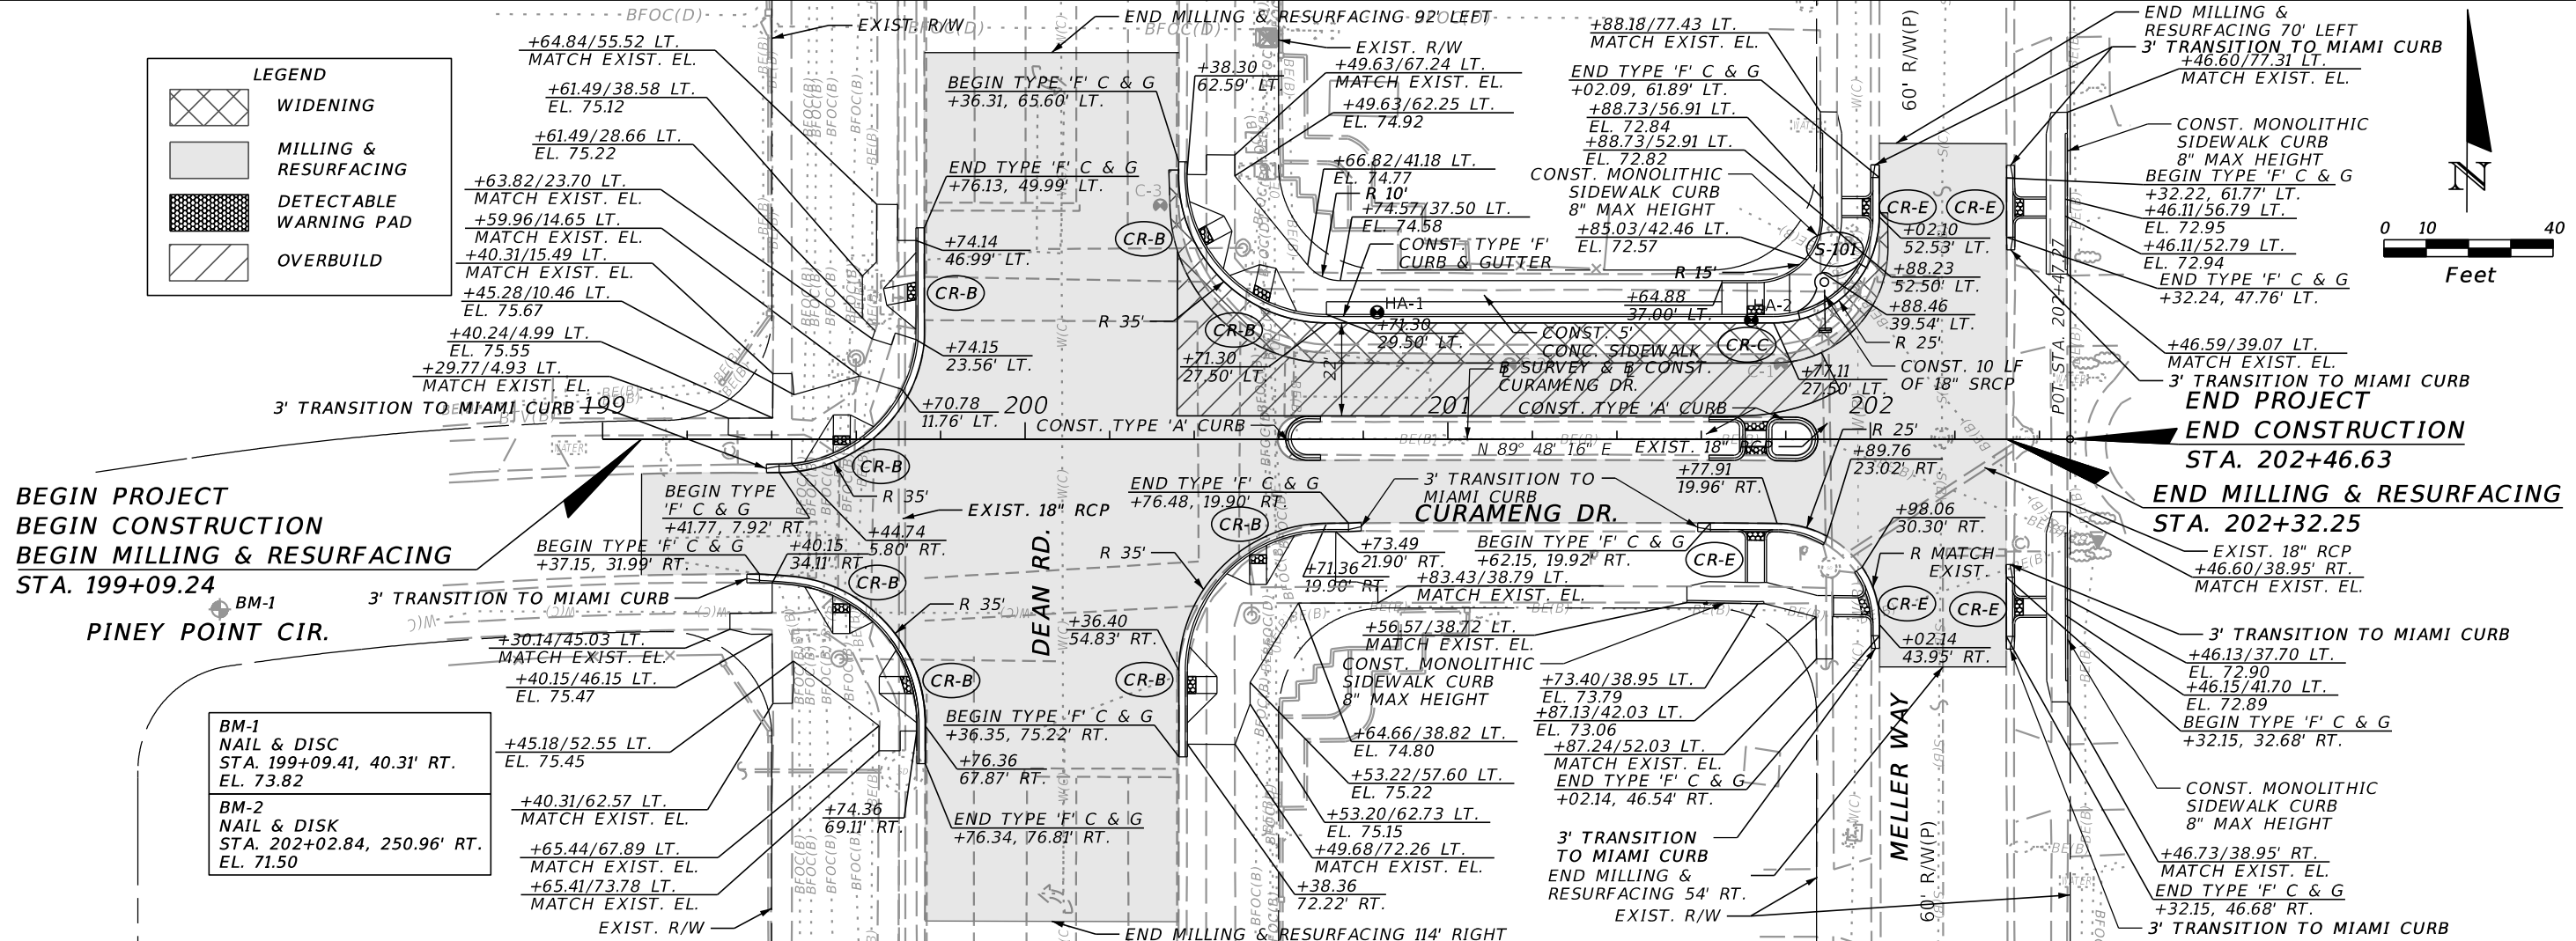 LEGEND
WIDENING
MILLING &
RESURFACING
DETECTABLE
WARNING PAD
OVERBUILD
BFOC(D)
EXIST. R/W
+64.84/55.52 LT.
MATCH EXIST. EL.
+61.49/38.58 LT.
EL. 75.12
+61.49/28.66 LT.
EL. 75.22
+63.82/23.70 LT.
MATCH EXIST. EL.
+59.96/14.65 LT.
MATCH EXIST. EL.
+40.31/15.49 LT.
MATCH EXIST. EL.
+45.28/10.46 LT.
EL. 75.67
+40.24/4.99 LT.
EL. 75.55
+29.77/4.93 LT.
MATCH EXIST. EL.
3' TRANSITION TO MIAMI CURB
199
BEGIN PROJECT
BEGIN CONSTRUCTION
BEGIN MILLING & RESURFACING
STA. 199+09.24
BM-1
PINEY POINT CIR.
BM-1
NAIL & DISC
STA. 199+09.41, 40.31' RT.
EL. 73.82
BM-2
NAIL & DISK
STA. 202+02.84, 250.96' RT.
EL. 71.50
BEGIN TYPE
'F' C & G
+41.77, 7.92' RT.
BEGIN TYPE 'F' C & G
+37.15, 31.99' RT.
3' TRANSITION TO MIAMI CURB
+40.15
34.11' RT.
+44.74
5.80' RT.
+30.14/45.03 LT.
MATCH EXIST. EL.
+40.15/46.15 LT.
EL. 75.47
+45.18/52.55 LT.
EL. 75.45
+40.31/62.57 LT.
MATCH EXIST. EL.
+65.44/67.89 LT.
MATCH EXIST. EL.
+65.41/73.78 LT.
MATCH EXIST. EL.
EXIST. R/W
+74.36
69.11' RT.
END MILLING & RESURFACING 92' LEFT
BFOC(D)
BFOC(D)
BEGIN TYPE 'F' C & G
+36.31, 65.60' LT.
END TYPE 'F' C & G
+76.13, 49.99' LT.
C-3
CR-B
+74.14
46.99' LT.
CR-B
R 35'
CR-B
+74.15
23.56' LT.
+70.78
11.76' LT.
200
CONST. TYPE 'A' CURB
CR-B
R 35'
EXIST. 18" RCP
DEAN RD.
CR-B
R 35'
CR-B
CR-B
+36.40
54.83' RT.
BEGIN TYPE 'F' C & G
+36.35, 75.22' RT.
+76.36
67.87' RT.
END TYPE 'F' C & G
+76.34, 76.81' RT.
END MILLING & RESURFACING 114' RIGHT
+38.30
62.59' LT.
EXIST. R/W
+49.63/67.24 LT.
MATCH EXIST. EL.
+49.63/62.25 LT.
EL. 74.92
+66.82/41.18 LT.
EL. 74.77
R 10'
+74.57/37.50 LT.
EL. 74.58
CONST. TYPE 'F'
CURB & GUTTER
HA-1
+71.30
29.50' LT.
+71.30
27.50' LT.
22'
CONST. 5'
CONC. SIDEWALK
B SURVEY & B CONST.
CURAMENG DR.
201
CONST. TYPE 'A' CURB
N 89° 48' 16" E
EXIST. 18" RCP
END TYPE 'F' C & G
+76.48, 19.90' RT.
CR-B
R 35'
3' TRANSITION TO
MIAMI CURB
CURAMENG DR.
+73.49
21.90' RT.
+71.36
19.90' RT.
BEGIN TYPE 'F' C & G
+62.15, 19.92' RT.
+83.43/38.79 LT.
MATCH EXIST. EL.
+56.57/38.72 LT.
MATCH EXIST. EL.
CONST. MONOLITHIC
SIDEWALK CURB
8" MAX HEIGHT
+64.66/38.82 LT.
EL. 74.80
+53.22/57.60 LT.
EL. 75.22
+53.20/62.73 LT.
EL. 75.15
+49.68/72.26 LT.
MATCH EXIST. EL.
+38.36
72.22' RT.
+88.18/77.43 LT.
MATCH EXIST. EL.
END TYPE 'F' C & G
+02.09, 61.89' LT.
+88.73/56.91 LT.
EL. 72.84
+88.73/52.91 LT.
EL. 72.82
CONST. MONOLITHIC
SIDEWALK CURB
8" MAX HEIGHT
+85.03/42.46 LT.
EL. 72.57
R 15'
+64.88
37.00' LT.
HA-2
CR-C
C-1
S-101
60' R/W(P)
CR-E
CR-E
+02.10
52.53' LT.
+88.23
52.50' LT.
+88.46
39.54' LT.
R 25'
CONST. 10 LF
OF 18" SRCP
+77.11
27.50' LT.
202
R 25'
+89.76
23.02' RT.
+77.91
19.96' RT.
CR-E
+98.06
30.30' RT.
R MATCH
EXIST.
CR-E
CR-E
+02.14
43.95' RT.
+73.40/38.95 LT.
EL. 73.79
+87.13/42.03 LT.
EL. 73.06
+87.24/52.03 LT.
MATCH EXIST. EL.
END TYPE 'F' C & G
+02.14, 46.54' RT.
3' TRANSITION
TO MIAMI CURB
END MILLING &
RESURFACING 54' RT.
EXIST. R/W
MELLER WAY
60' R/W(P)
END MILLING &
RESURFACING 70' LEFT
3' TRANSITION TO MIAMI CURB
+46.60/77.31 LT.
MATCH EXIST. EL.
CONST. MONOLITHIC
SIDEWALK CURB
8" MAX HEIGHT
BEGIN TYPE 'F' C & G
+32.22, 61.77' LT.
+46.11/56.79 LT.
EL. 72.95
+46.11/52.79 LT.
EL. 72.94
END TYPE 'F' C & G
+32.24, 47.76' LT.
POT STA. 202+47.27
+46.59/39.07 LT.
MATCH EXIST. EL.
3' TRANSITION TO MIAMI CURB
END PROJECT
END CONSTRUCTION
STA. 202+46.63
END MILLING & RESURFACING
STA. 202+32.25
EXIST. 18" RCP
+46.60/38.95 RT.
MATCH EXIST. EL.
3' TRANSITION TO MIAMI CURB
+46.13/37.70 LT.
EL. 72.90
+46.15/41.70 LT.
EL. 72.89
BEGIN TYPE 'F' C & G
+32.15, 32.68' RT.
CONST. MONOLITHIC
SIDEWALK CURB
8" MAX HEIGHT
+46.73/38.95' RT.
MATCH EXIST. EL.
END TYPE 'F' C & G
+32.15, 46.68' RT.
3' TRANSITION TO MIAMI CURB
N
0 10 40
Feet